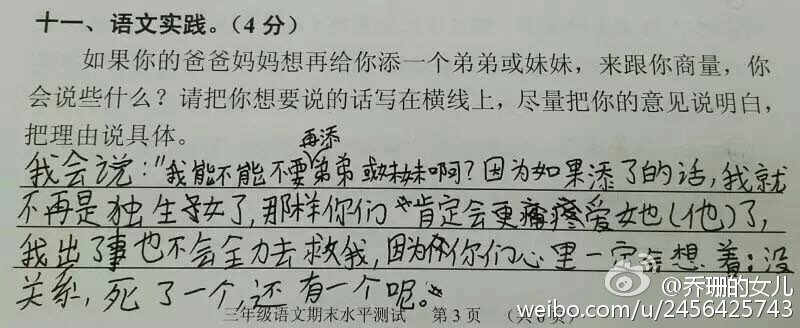 十一、语文实践。（4分）
如果你的爸爸妈妈想再给你添一个弟弟或妹妹，来跟你商量，你
会说些什么？请把你想要说的话写在横线上，尽量把你的意见说明白，
把理由说具体。
再添
我会说："我能不能不要弟弟或妹妹啊？因为如果添了的话，我就
不再是独生子女了，那样你们肯定会更疼爱她（他）了，
我出了事也不会全力去救我，因为你们心里一定会想着：没
关系，死了一个，还有一个呢。"
三年级语文期末水平测试 第3页 （共6页）
@乔珊的女儿
weibo.com/u/2456425743